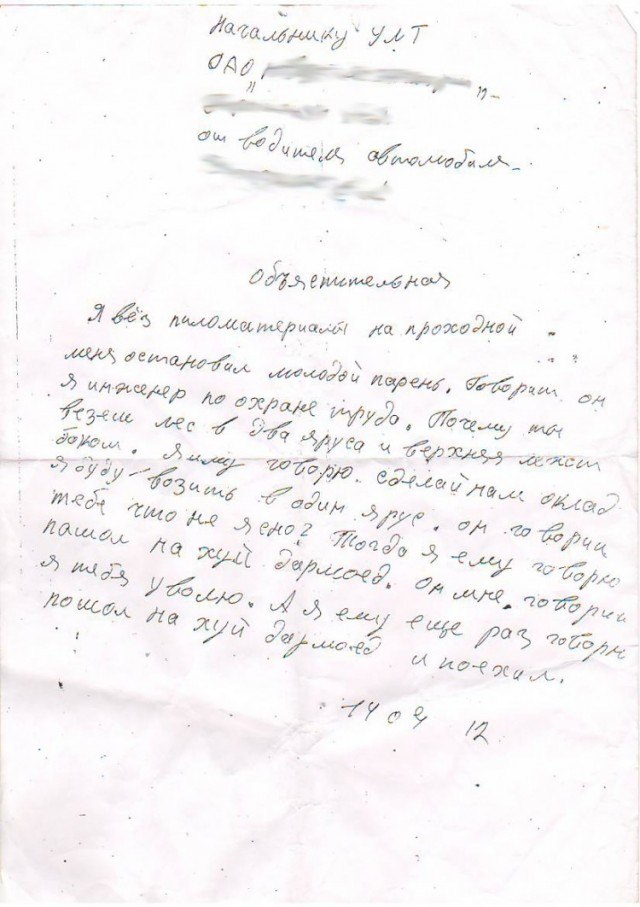 Начальнику УМТ
ОАО "
" п-
от водителя автомобиля
Объяснительная
Я вёз пиломатериалы на проходной
меня остановил молодой парень. Говорит он
я инженер по охране труда. Почему ты
везеш лес в два яруса и верхняя лежит
боком. Я иму говорю. сделай нам оклад
я буду возить в один ярус. он говорит
тебе что не ясно? Тогда я ему говорю
пашол на хуй дармоед. он мне. говорит
я тебя уволю. А я ему еще раз говорю
пошол на хуй дармоед и поехал.
14 04 12